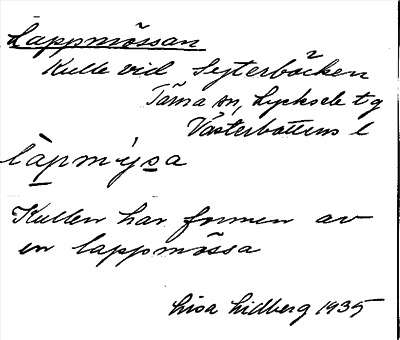 Lappmössan
Kulle vid Syterbäcken
Tärna sn, Lycksele tg
Västerbottens l
làpmýsa
Kullen har formen av
en lappmössa
Lisa Lidberg 1935